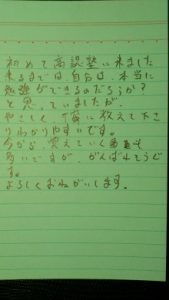 初めて高認塾に来ました
来るまでは自分は、本当に
勉強ができるのだろうか?
と思っていましたが、
やさしく丁寧に教えて下さ
りわかりやすいです。
今から、覚えていく事も
多いですが、がんばれそうで
す。
よろしくおねがいします。